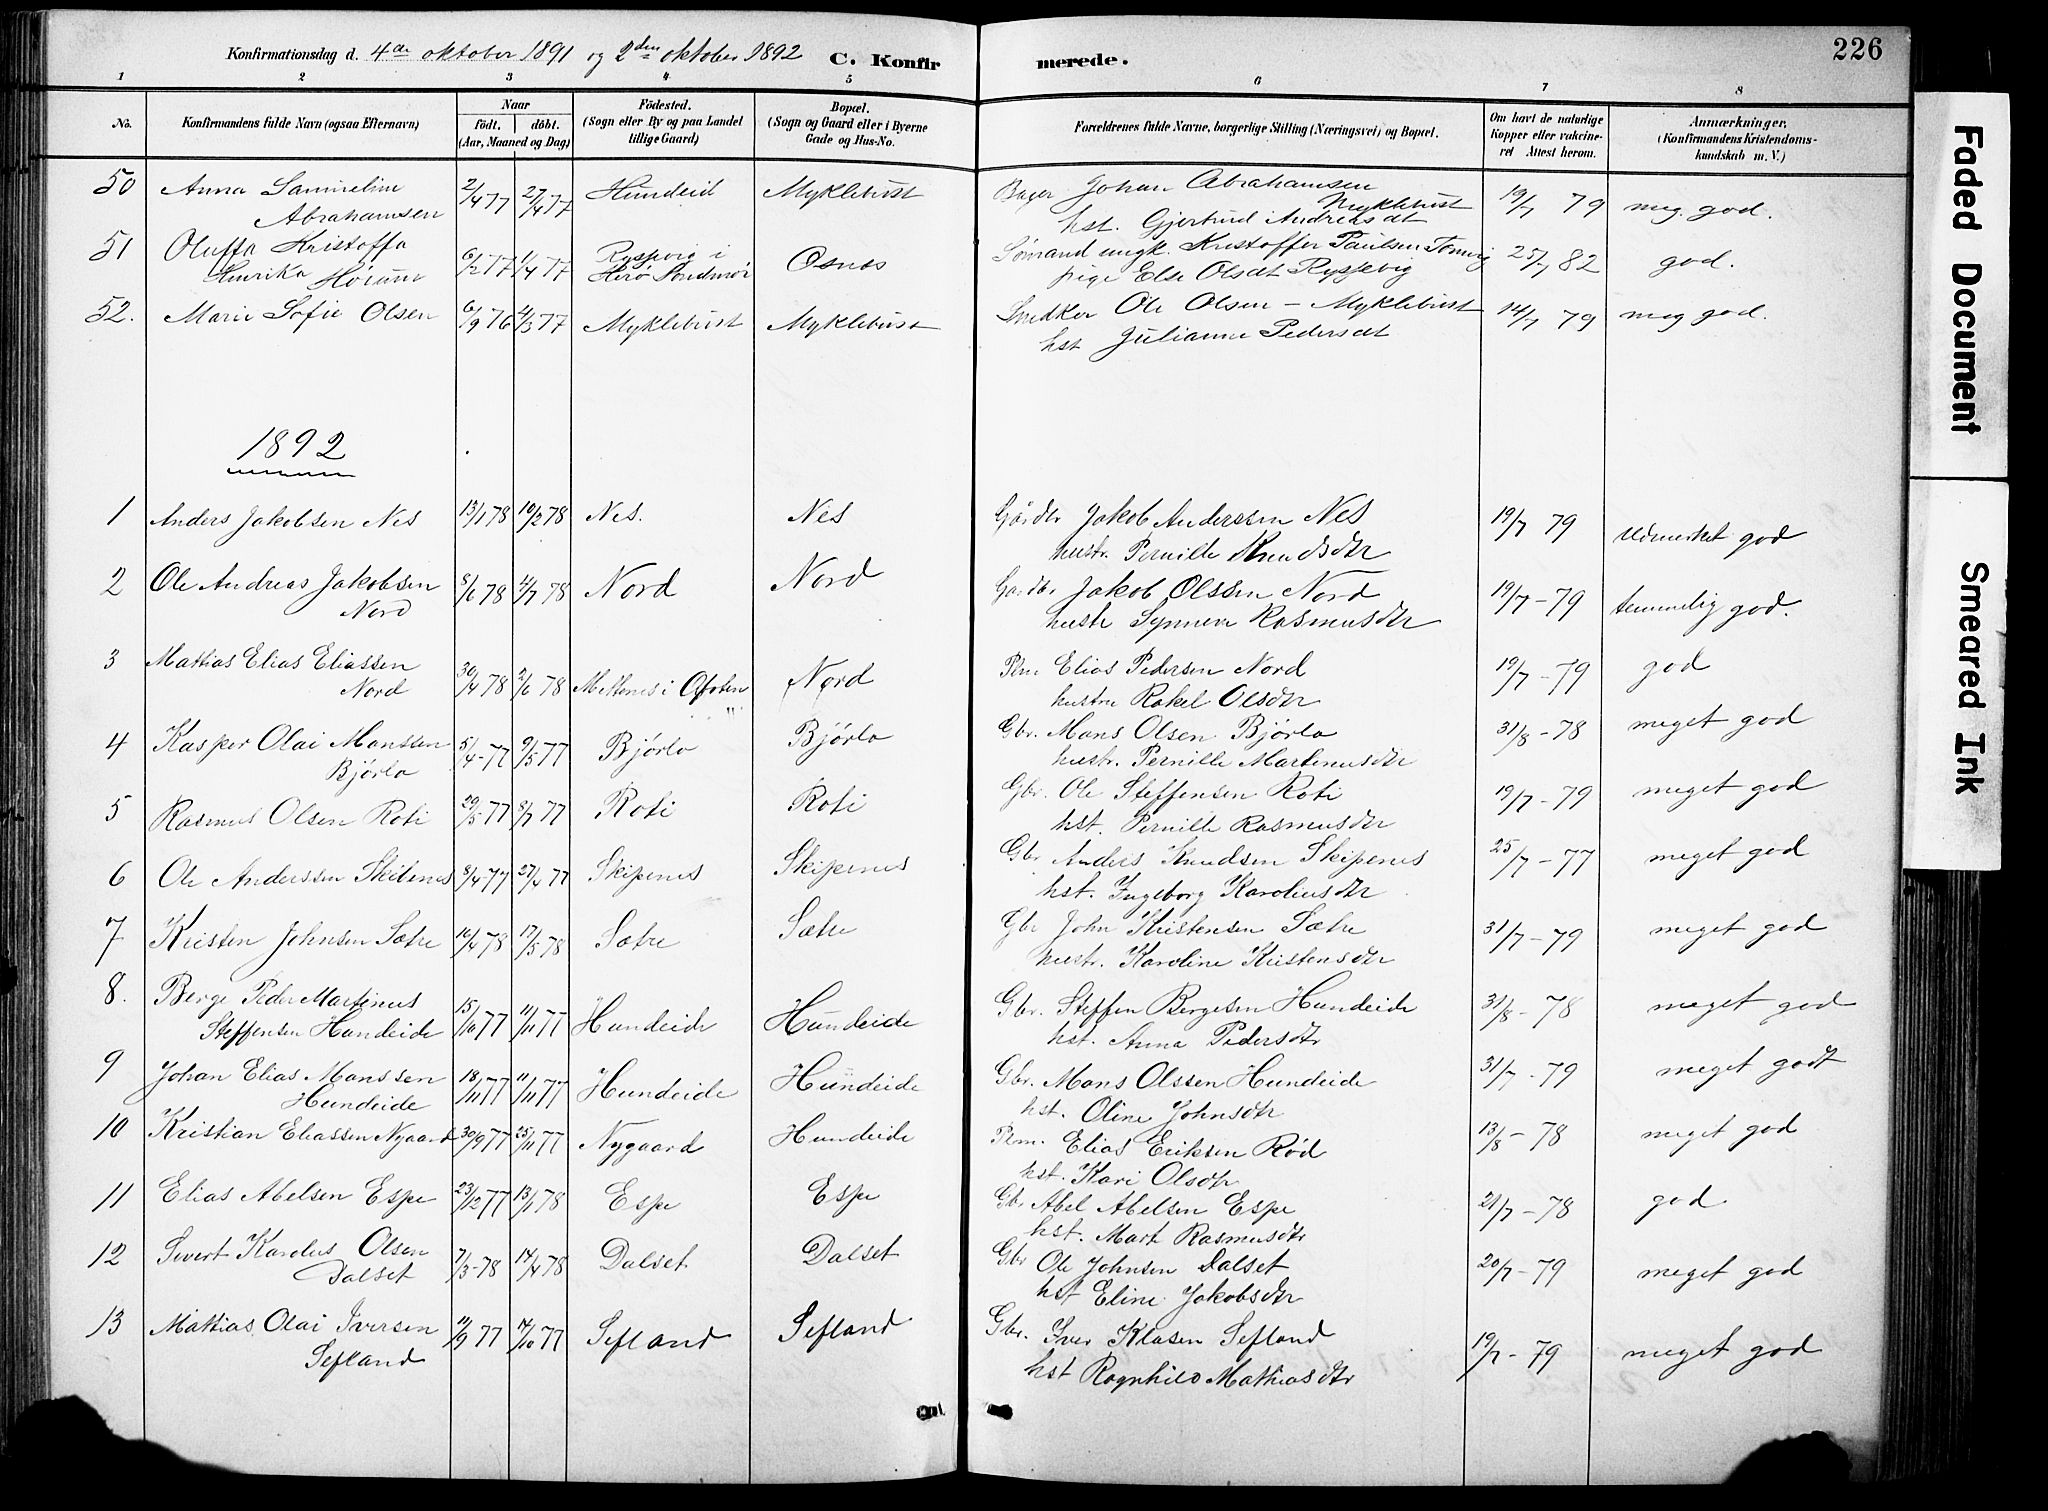 Konfirmationsdag d. 4de oktober 1891 og 2den oktober 1892 C. Konfirmerede. 226
1 2 3 4 5 6 7 8
No.
Konfirmandens fulde Navn (ogsaa Efternavn)
Naar
födt. döbt.
(Aar, Maaned og Dag)
Födested.
(Sogn eller By og paa Landet
tillige Gaard)
Bopæl.
(Sogn og Gaard eller i Byerne
Gade og Hus-No.
Forældrenes fulde Navne, borgerlige Stilling (Næringsvei) og Bopæl.
Om havt de naturlige
Kopper eller vakcine-
ret Attest herom.
Anmærkninger.
(Konfirmandens Kristendoms-
kundskab m. V.)
50 Anna 2/4 77 27/4 77 Hundeid Myklebust Johan Abrahamsen 19/7 79 meg. god.
Abrahamsen Myklebust
hst. Gjertrud Andreasdt
51 Oluffa Kristoffa 6/2 77 1/4 77 i Osnes ungk. Kristoffer Paulsen 25/7 82 god.
Henrika pige Else Olsdt
52. Marie Sofie Olsen 6/9 76 4/3 77 Myklebust Myklebust Snedker Ole Olsen - Myklebust 14/7 79 meg god.
hst Julianne Pedersdt
1892
1 Anders Jakobsen Nes 13/1 78 10/2 78 Nes. Nes Gårdbr Jakob Anderssen Nes 19/7 79 udmerket god
hustr. Pernille Knudsdtr
2 Ole Andreas Jakobsen 8/6 78 4/7 78 Nord Nord Gårdbr Jakob Olssen Nord 19/7 - 79 temmelig god.
Nord hustr Synneve Rasmusdtr
3 Mathias Elias Eliassen 30/4 78 2/6 78 i Ofoten Nord Plm Elias Pedersen Nord 19/7 - 79 god
Nord hustru Rakel Olsdtr
4 Kasper Olai Monssen 5/4 - 77 9/5 77 Bjørlo Bjørlo Gbr. Mons Olsen Bjørlo 31/8 - 78 meget god
Bjørlo hustr. Pernille Martinusdtr
5 Rasmus Olsen Roti 29/5 77 8/7 77 Roti Roti Gbr. Ole Steffensen Roti 19/7 - 79 meget god
hst. Pernille Rasmusdtr
6 Ole Anderssen 8/4 - 77 27/4 77 Skipenes Skipenes Gbr Anders Knudsen Skipenes 25/7 - 77 meget god
hst. Ingeborg Karolinsdtr
7 Kristen Johnsen Sætre 16/4 78 17/5 78 Sætre Sætre Gbr John Kristensen Sætre 31/7 - 79 meget god
hustr. Karoline Kristensdtr
8. Berge Peder Martinus 15/10 77 11/11 77 Hundeide Hundeide Gbr. Steffen Bergesen Hundeide 31/8 - 78 meget god
Steffensen Hundeide hst. Anna Pedersdtr
9 Johan Elias Monssen 18/11 77 11/11 77 Hundeide Hundeide Gbr. Mons Olssen Hundeide 31/7 - 79 meget godt
Hundeide hst. Oline Johnsdtr
10 Kristian Eliassen Nygaard 30/9 77 25/11 77 Nygaard Hundeide Plm. Elias Eriksen Rød 13/8 - 78 meget god
hst. Kari Olsdtr
11 Elias Abelsen Espe 23/12 77 13/1 78 Espe Espe Gbr Abel Abelsen Espe 21/7 - 78 god
hst. Mart Rasmusdtr
12 Sivert Karolus Olsen 7/3 - 78 14/4 78 Dalset Dalset Gbr Ole Johnsen Dalset 20/7 - 79 meget god
Dalset hst Eline Jakobsdtr
13 Mathias Olai Iversen 11/9 77 14/10 77 Sefland Sefland Gbr. Iver Klasen Sefland 19/7 - 79 meget god
Sefland hst Ragnhild Mathiasdtr
Faded Document
Smeared Ink